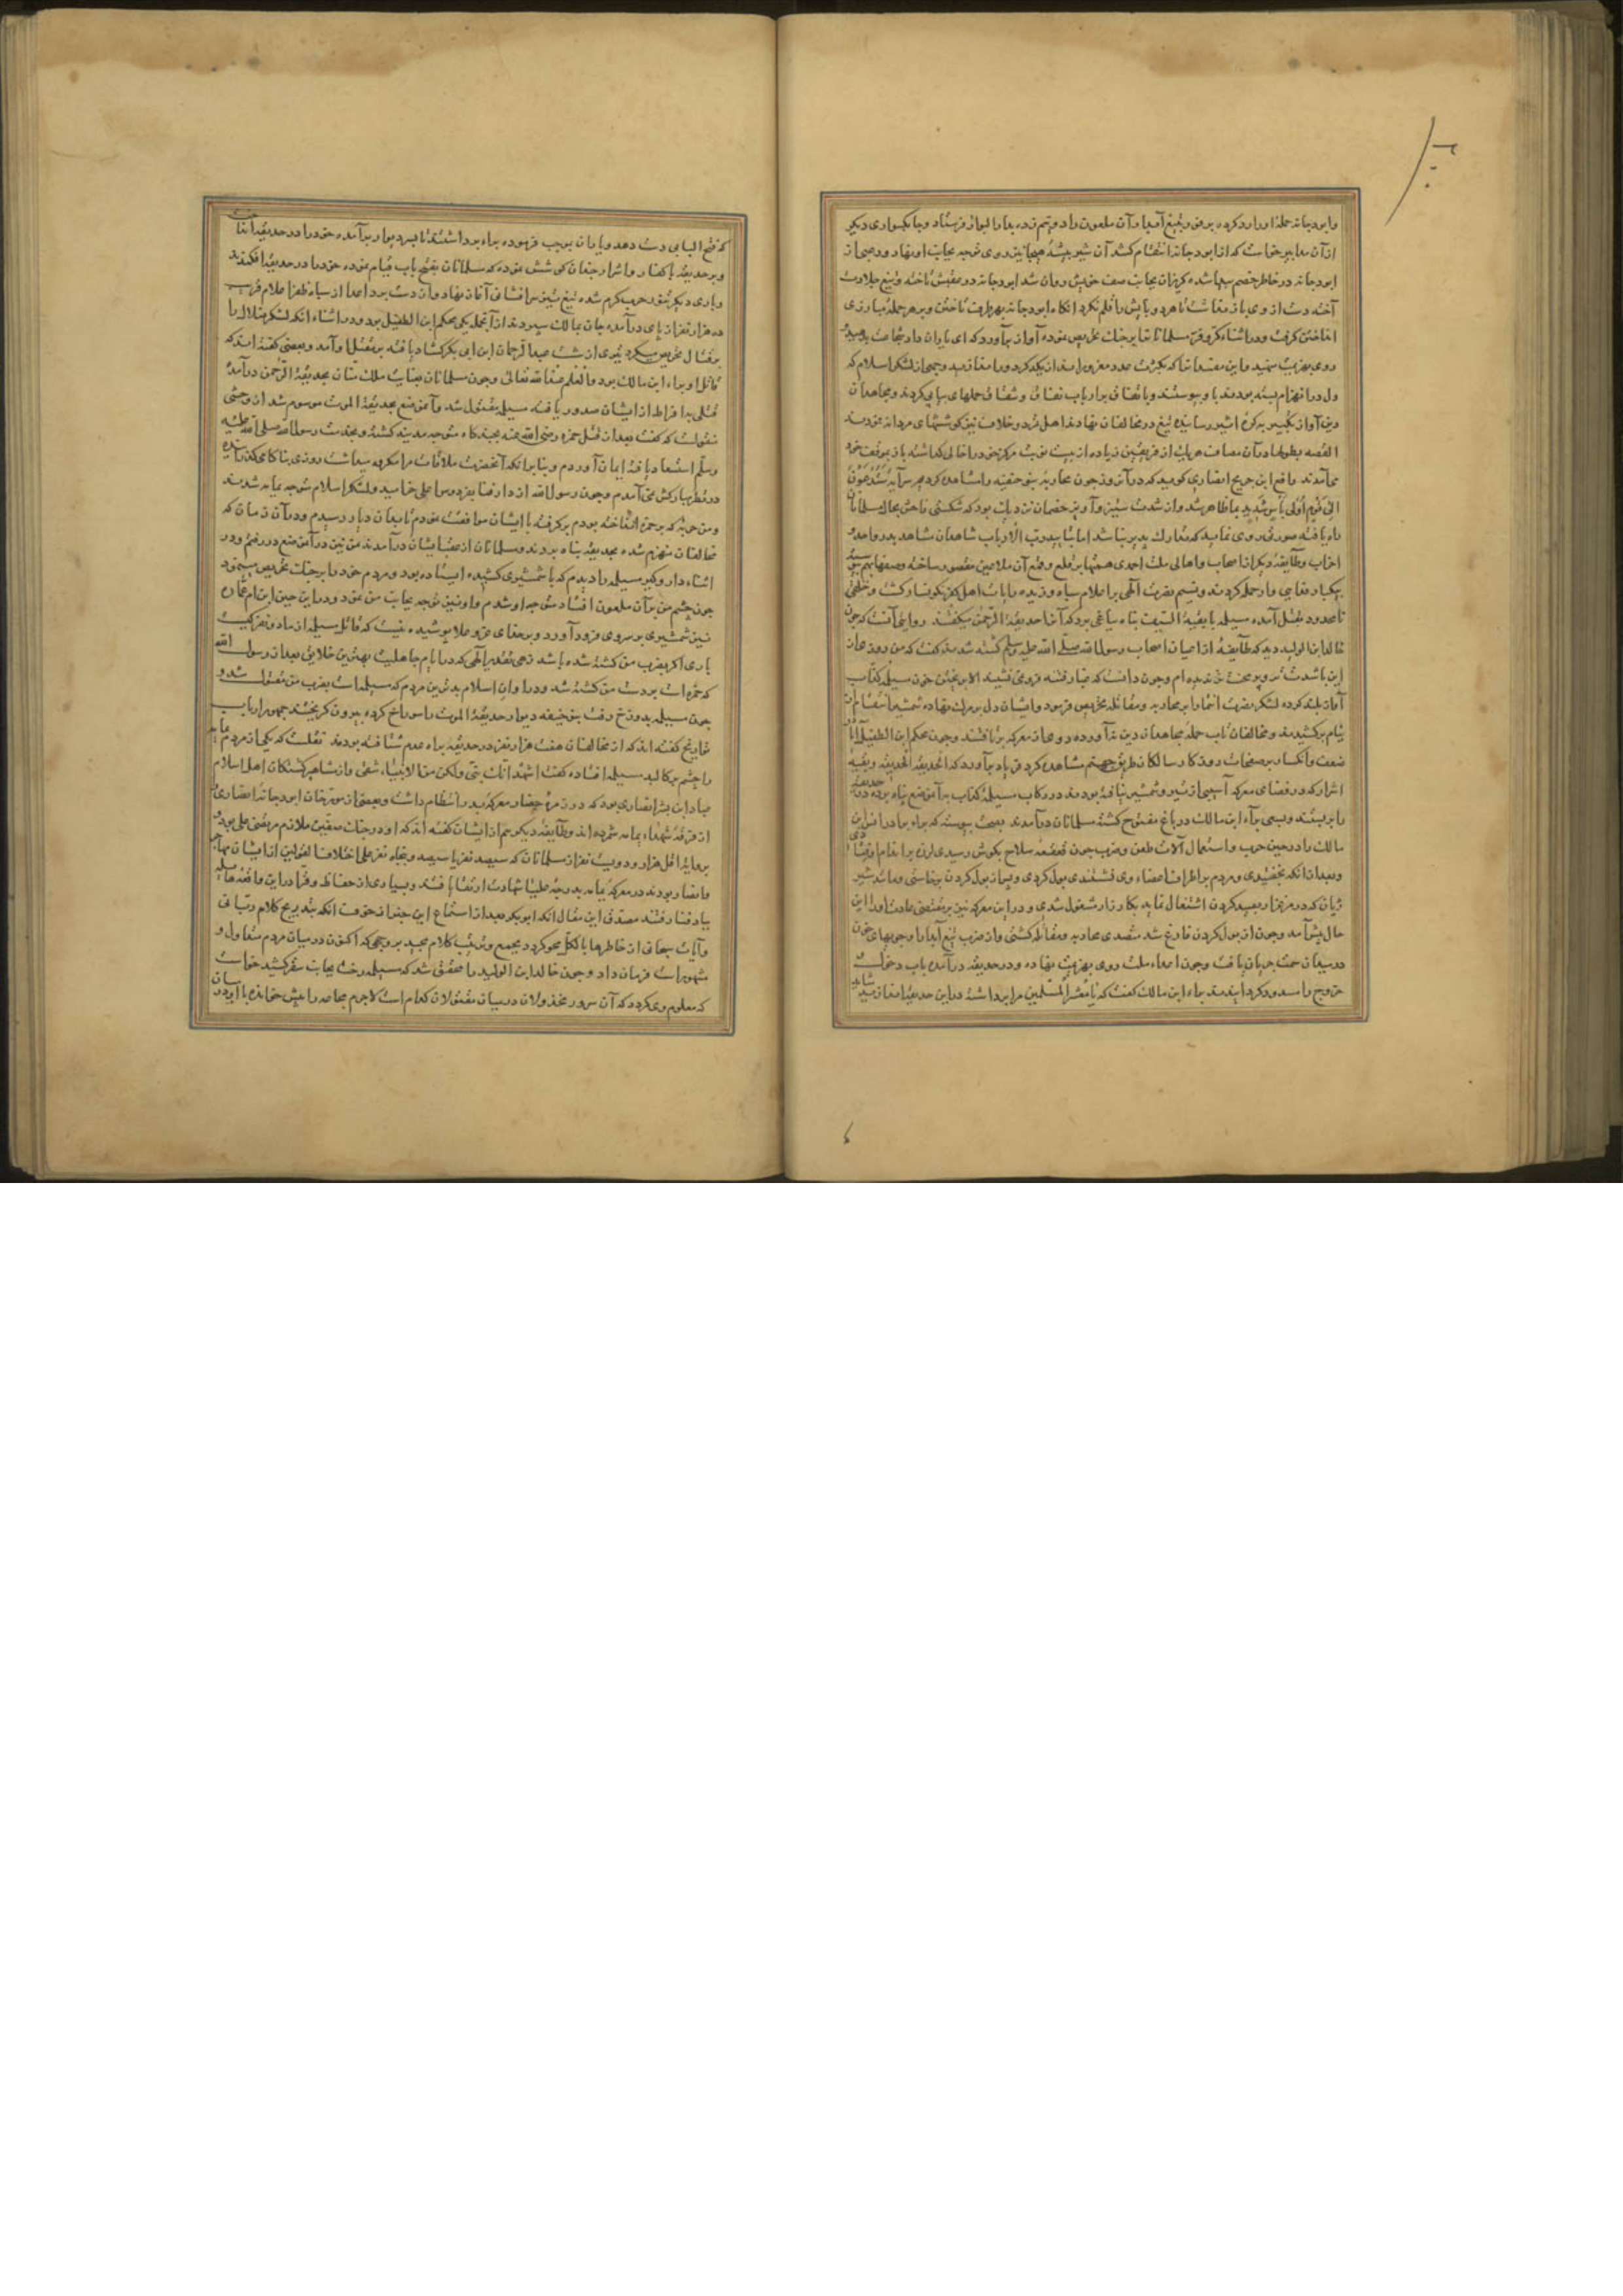 وابودجانه حمله او را رد کرده برق تیغ آبدار آن ملعون را دو نیم زده بدار البوار فرستاد و جابکسواری دیکر
از آن مدابیر خواست که از ابودجانه انتقام کشد آن شیر بیشهٔ هیجا نیز روی توجه بجانب او نهاد و رعبی از
ابودجانه در خاطر خصم پیدا شده کریزان بجانب صف خویش روان شد ابودجانه در عقبش تاخته و تیغ جلادت
آخته دست از وی باز نداشت تا هر دو پایش را قلم نکرد انکاه ابودجانه بهر طرف تاختن و بر هر حمله مبارزی
انداختن کرفت و در اثناء کرّ و فرّ مسلمانانرا بر جنک تحریص نموده آواز برآورد که ای یاران داد شجاعت بدهید
روی بهزیمت منهید و این مفسدانرا که بکثرت عدد مغرورند از یکدکر دور اندازید و جمعی از لشکر اسلام که
دل در انهزام بسته بودند باو پیوستند و باتفاق بر ارباب نفاق و شقاق حملهای پیاپی کردند و مجاهدان
دین آواز تکبیر بکرهٔ اثیر رسانیده تیغ در مخالفان نهادند اهل رده و خلاف نیز کوششهای مردانه نمودند
القصه بطولها در آن مصاف هر یک از فریقین زیاده از بیست نوبت مرکز خود را خالی کذاشته باز بموقف خود
می آمدند رافع ابن خدیج انصاری کوید که در آن روز چون محاربهٔ بنو حنیفه را مشاهده کردم سرّ آیهٔ سَتُدْعَوْنَ
اِلی قَوْمٍ اُولی بَأْسٍ شَدیدٍ بما ظاهر شد و از شدت ستیز و آویز خصمان نزدیک بود که شکستی فاحش بحال مسلمانان
راه یافته صورتی روی نماید که تدارک پذیر نباشد اما بتایید رب الارباب
احزاب و طایفهٔ دیکر از اصحاب و اهالی ملت احمدی همتها بر قلع و قمع آن ملاعین مقصور ساخته
بیکبار حمله کردند و نسیم نصرت الهی بر اعلام سپاه وزیده رایات اهل کفر نکونسار کشت و خلقی
نامعدود بقتل آمده مسیلمه با بقیة السیف پناه بباغی برد که آنرا حدیقة الرحمن میکفتند روایتی آنست که چون
خالد ابن الولید دید که طایفهٔ از اعیان اصحاب رسول الله صلی الله علیه وسلم کشته شدند کفت که من روز چنان
این باشدت و محنت ندیده ام و چون دانست که غبار فتنه فرو نمی نشیند الا بریختن خون مسیلمه کذاب
آواز بلند کرده لشکر نصرت انتما را بر محاربه و مقاتله تحریص فرمود و ایشان دل بر مرک نهاده شمشیر انتقام از
نیام برکشیدند و مخالفان تاب حملهٔ مجاهدان دین نیاورده روی از معرکه برتافتند و چون محکم ابن الطفیل آثار
ضعف و انکسار بر صفحات روزکار سالکان طریق جهنم مشاهده کرد فریاد برآورد که الحدیقه الحدیقه و بقیهٔ
اشرار که در فضای معرکه آسیبی از تیر و شمشیر نیافته بودند در رکاب مسیلمهٔ کذاب بدان موضع پناه برده در حدیقه
را بربستند و بسعی براء ابن مالک در باغ مفتوح کشته مسلمانان درآمدند بصحت پیوسته که براء برادر انس ابن
مالک را در حین حرب و استعمال آلات طعن و ضرب چون قعقعهٔ سلاح بکوش رسیدی لرزه بر اندام افتادی
و بعد از انکه بخفتیدی و مردم بر اطراف اعضاء وی نشستندی بول کردی و پس از بول کردن برخاستی و مانند شیر
ژیان که در مرغزار بصید کردن اشتغال نماید بکارزار مشغول شدی و در این معرکه نیز بر مقتضی عادت او را این
حال پیش آمد و چون از بول کردن فارغ شد متصدی محاربه و مقاتله کشتی و از ضرب تیغ آبدار او جویهای خون
در میدان سمت جریان یافت و چون اعداء ملت روی بهزیمت نهاده و در حدیقه درآمده باب دخول
خروج را مسدود کردانیدند براء ابن مالک کفت که یا معشر المسلمین مرا برداشته در این حدیقه اندازید شاید
که فتح البابی دست دهد و یاران بموجب فرموده براء برداشتند تا بر سر دیوار برآمده خود را در حدیقه انداخت
و در حدیقه با کفار و اشرار چندان کوشش نموده که مسلمانان بفتح باب قیام نموده خود را در حدیقه افکندند
و باری دیکر تنور حرب کرم شده تیغ تیز سرافشانی آغاز نهاد و از دست برد اعدا از سپاه ظفر اعلام قریب
ده هزار نفر از پای درآمده جان بمالک سپردند از آنجمله یکی محکم ابن الطفیل بود و در اثناء انکه لشکر ضلال را
بر قتال تحریص میکرد تیری از شست عبدالرحمان ابن ابی بکر کشاد یافته بر مقتل او آمد و بعضی کفته اند که
قاتل او براء ابن مالک بود والعلم عند الله تعالی و چون مسلمانان بعنایت ملک منان بحدیقة الرحمن درآمدند
قتلی بافراط از ایشان صدور یافته مسیلمه بقتول شد و آن موضع بحدیقة الموت موسوم شد از وحشی
منقولست که کفت بعد از قتل حمزه رضی الله عنه بچندکاه متوجه مدینه کشته و بخدمت رسول الله صلی الله علیه
وسلم استسعاد یافته ایمان آوردم و بنابر انکه آنحضرت ملاقات مرا مکروه میداشت روزی بناکامی کذرانیده
در نظر مبارکش نمی آمدم و چون رسول الله از دار فنا بفردوس اعلی خرامید و لشکر اسلام متوجه یمامه شدند
و من حربه که بر حمزه انداخته بودم برکرفته با ایشان موافقت نمودم تا بدان دیار رسیدم و در آن زمان که
مخالفان منهزم شده بحدیقه پناه بردند و مسلمانان از عقب ایشان درآمدند من نیز در آن موضع در رفتم و در
اثناء دار و کیر مسیلمه را دیدم که با شمشیری کشیده ایستاده بود و مردم خود را بر جنک تحریص مینمود
چون چشم من بر آن ملعون افتاد متوجه او شدم و او نیز توجه بجانب من نمود و در این حین ابن ام عماره
نیز شمشیری بر سر وی فرود آورد و بر خدای عز و علا پوشیده نیست که قاتل مسیلمه از ما دو نفر کیست
باری اکر بضرب من کشته شده باشد زهی تقدیر الهی که در ایام جاهلیت بهترین خلایق بعد از رسول الله
که حمزه است بر دست من کشته شد و در اوان اسلام بدترین مردم که مسیلمه است بضرب من مقتول شد و
چون مسیلمه بدوزخ رفت بنو حنیفه دیوار حدیقة الموت را سوراخ کرده بیرون کریختند جمهور ارباب
تواریخ کفته اند که از مخالفان هفت هزار نفر در حدیقه براه عدم شتافته بودند نقلست که یکی از مردم یمامه
را چشم بر کالبد مسیلمه افتاده کفت اشهد انک نبی ولکن من الانبیاء شقی و از مشاهیر کشتکان اهل اسلام
عباد ابن بشر انصاری بود که در زمرهٔ حضار معرکهٔ بدر انتظام داشت و بعضی از مورخان ابودجانه انصاری را
از فرقهٔ شهداء یمامه شمرده اند و طایفهٔ دیکر هم از ایشان کفته اند که او در جنک صفین ملازم مرتضی علی بود و
بروایة اقل هزار و دویست نفر از مسلمانان که سیصد نفر یا سیصد و پنجاه نفر علی اختلاف القولین از ایشان مهاجر
و انصار بودند در معرکهٔ یمامه بدرجهٔ علیا شهادت ارتقا یافتند و بسیاری از حفاظ و قراء در این واقعهٔ هایله
بباد فنا رفتند مصدق این مقال انکه ابوبکر بعد از استماع این خبر از خوف انکه بتدریج کلام ربانی
و آیات سبحانی از خاطرها بالکل محو کردد بجمع و ترتیب کلام مجید بر وجهی که اکنون در میان مردم متداول و
مشهور است فرمان داد و چون خالد ابن الولید را محقق شد که مسیلمه رخت بجانب سقر کشید خواست
که معلوم وی کردد که آن سرور مخذولان در میان مقتولان کدام است لاجرم مجاعه را پیش خوانده با او در میان